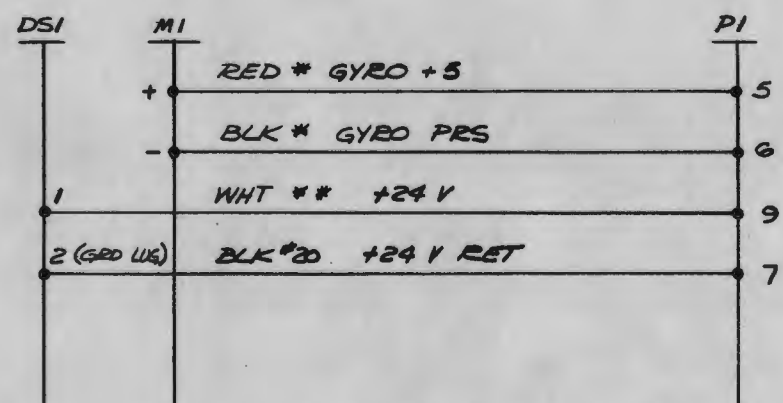 DS1 M1 P1
RED * GYRO +5
+ 5
BLK * GYRO PRS
- 6
1 WHT ** +24 V
9
2 (GRD LUG) BLK #20 +24 V RET
7